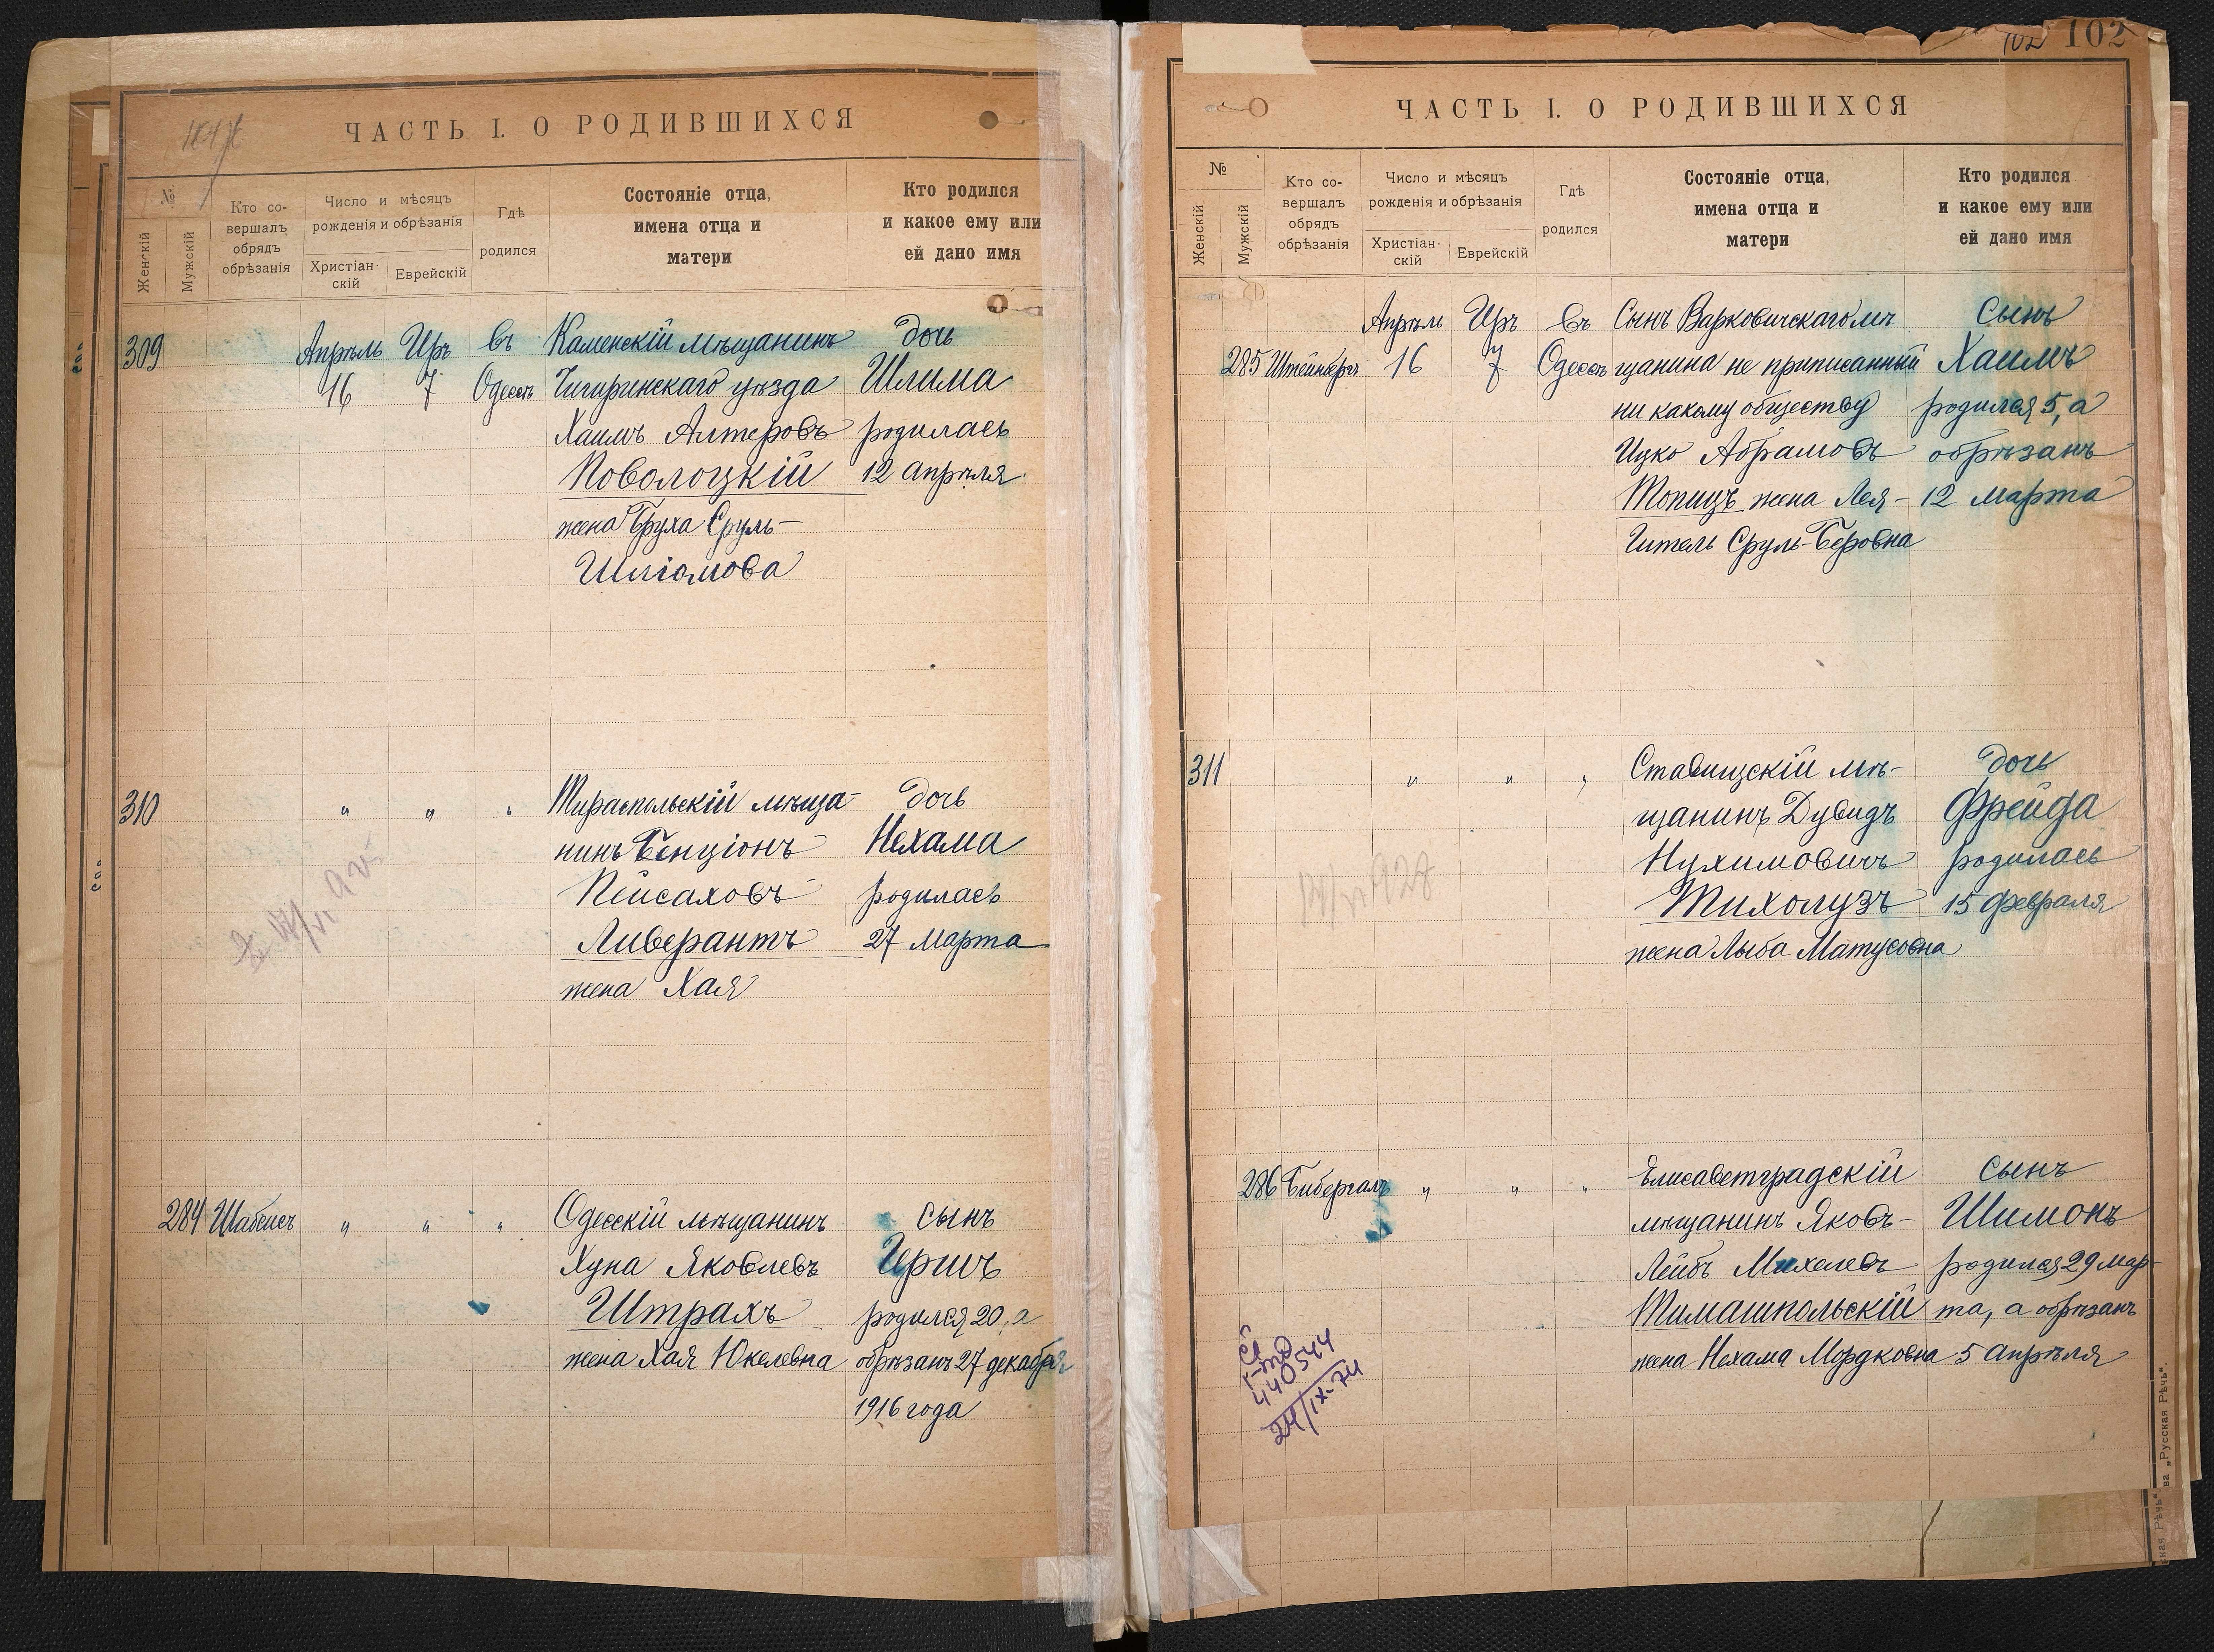 ЧАСТЬ I. О РОДИВШИХСЯ
№
Женскій
Мужскій
Кто со-
вершалъ
обрядъ
обрѣзанія
Число и мѣсяцъ
рожденія и обрѣзанія
Христіан-
скій
Еврейскій
Гдѣ
родился
Состояніе отца,
имена отца и
матери
Кто родился
и какое ему или
ей дано имя
309
Апрѣль
16
Иръ
7
въ
Одессѣ
Каменскій мѣщанинъ
Чигиринскаго уѣзда
Хаимъ Алтеровъ
Поволоцкій
жена Бруха Сруль-
Шліомова
дочь
Шлима
родилась
12 апрѣля
310
" " "
Тираспольскій мѣща-
нинъ Бенціонъ
Пейсаховъ
Ливерантъ
жена Хая
дочь
Нехама
родилась
27 марта
284 Шабсисъ " " "
Одесскій мѣщанинъ
Хуна Яковлевъ
Штрахъ
жена Хая Юкелевна
сынъ
Гершъ
родился 20, а
обрѣзанъ 27 декабря
1916 года
102 102
ЧАСТЬ I. О РОДИВШИХСЯ
№
Женскій
Мужскій
Кто со-
вершалъ
обрядъ
обрѣзанія
Число и мѣсяцъ
рожденія и обрѣзанія
Христіан-
скій
Еврейскій
Гдѣ
родился
Состояніе отца,
имена отца и
матери
Кто родился
и какое ему или
ей дано имя
285 Штейнбергъ
Апрѣль
16
Иръ
7
въ
Одессѣ
Сынъ Варковичскаго мѣ
щанина не приписанный
ни какому обществу
Ицко Абрамовъ
Топицъ жена Лея-
Гитель Сруль-Беровна
сынъ
Хаимъ
родился 5, а
обрѣзанъ
12 марта
311
" " "
Ставищскій мѣ-
щанинъ Дувидъ
Нухимовичъ
Тихолузъ
жена Лыба Матусовна
дочь
Фрейда
родилась
15 февраля
286 Бибергалъ " " "
Елисаветградскій
мѣщанинъ Яковъ-
Лейбъ Михелевъ
Тимашпольскій
жена Нехама Мордковна
сынъ
Шимонъ
родился 29 мар-
та, а обрѣзанъ
5 апрѣля
440544
24/IX-74
ва „Русская Рѣчь“.